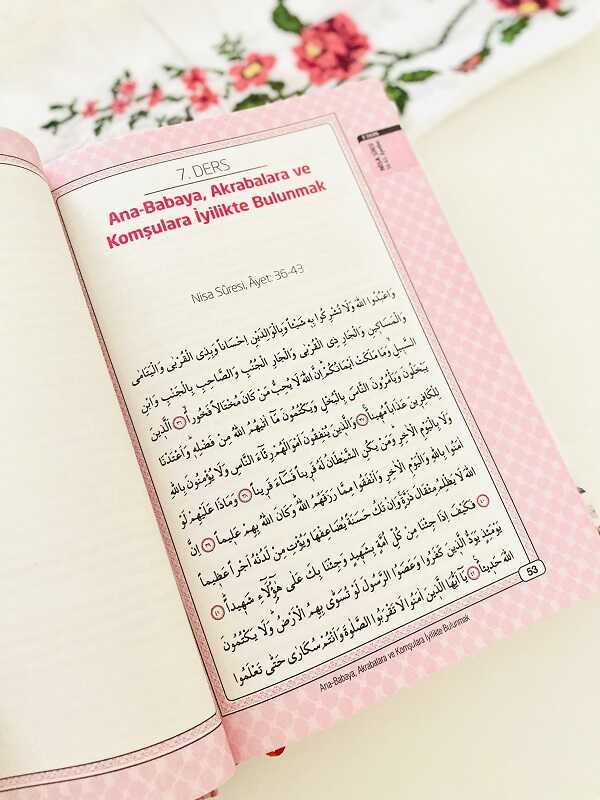 7. DERS
Ana-Babaya, Akrabalara ve
Komşulara İyilikte Bulunmak
Nisa Sûresi, Âyet: 36-43
وَاعْبُدُوا اللّٰهَ وَلَا تُشْرِكُوا بِهِ شَيْئاً وَبِالْوَالِدَيْنِ اِحْسَاناً وَبِذِى الْقُرْبٰى وَالْيَتَامٰى
وَالْمَسَاكِينِ وَالْجَارِ ذِى الْقُرْبٰى وَالْجَارِ الْجُنُبِ وَالصَّاحِبِ بِالْجَنْبِ وَابْنِ
السَّبِيلِ وَمَا مَلَكَتْ اَيْمَانُكُمْ اِنَّ اللّٰهَ لَا يُحِبُّ مَنْ كَانَ مُخْتَالاً فَخُوراً ﴿٣٦﴾ اَلَّذِينَ
يَبْخَلُونَ وَيَأْمُرُونَ النَّاسَ بِالْبُخْلِ وَيَكْتُمُونَ مَا اٰتٰيهُمُ اللّٰهُ مِنْ فَضْلِهِ وَاَعْتَدْنَا
لِلْكَافِرِينَ عَذَاباً مُهِيناً ﴿٣٧﴾ وَالَّذِينَ يُنْفِقُونَ اَمْوَالَهُمْ رِئَاءَ النَّاسِ وَلَا يُؤْمِنُونَ بِاللّٰهِ
وَلَا بِالْيَوْمِ الْاٰخِرِ وَمَنْ يَكُنِ الشَّيْطَانُ لَهُ قَرِيناً فَسَاءَ قَرِيناً ﴿٣٨﴾ وَمَاذَا عَلَيْهِمْ لَوْ
اٰمَنُوا بِاللّٰهِ وَالْيَوْمِ الْاٰخِرِ وَاَنْفَقُوا مِمَّا رَزَقَهُمُ اللّٰهُ وَكَانَ اللّٰهُ بِهِمْ عَلِيماً ﴿٣٩﴾ اِنَّ
اللّٰهَ لَا يَظْلِمُ مِثْقَالَ ذَرَّةٍ وَاِنْ تَكُ حَسَنَةً يُضَاعِفْهَا وَيُؤْتِ مِنْ لَدُنْهُ اَجْراً عَظِيماً ﴿٤٠﴾
فَكَيْفَ اِذَا جِئْنَا مِنْ كُلِّ اُمَّةٍ بِشَهِيدٍ وَجِئْنَا بِكَ عَلٰى هٰؤُلَاءِ شَهِيداً ﴿٤١﴾
يَوْمَئِذٍ يَوَدُّ الَّذِينَ كَفَرُوا وَعَصَوُا الرَّسُولَ لَوْ تُسَوّٰى بِهِمُ الْاَرْضُ وَلَا يَكْتُمُونَ
اللّٰهَ حَدِيثاً ﴿٤٢﴾ يَا اَيُّهَا الَّذِينَ اٰمَنُوا لَا تَقْرَبُوا الصَّلٰوةَ وَاَنْتُمْ سُكَارٰى حَتّٰى تَعْلَمُوا
53
Ana-Babaya, Akrabalara ve Komşulara İyilikte Bulunmak